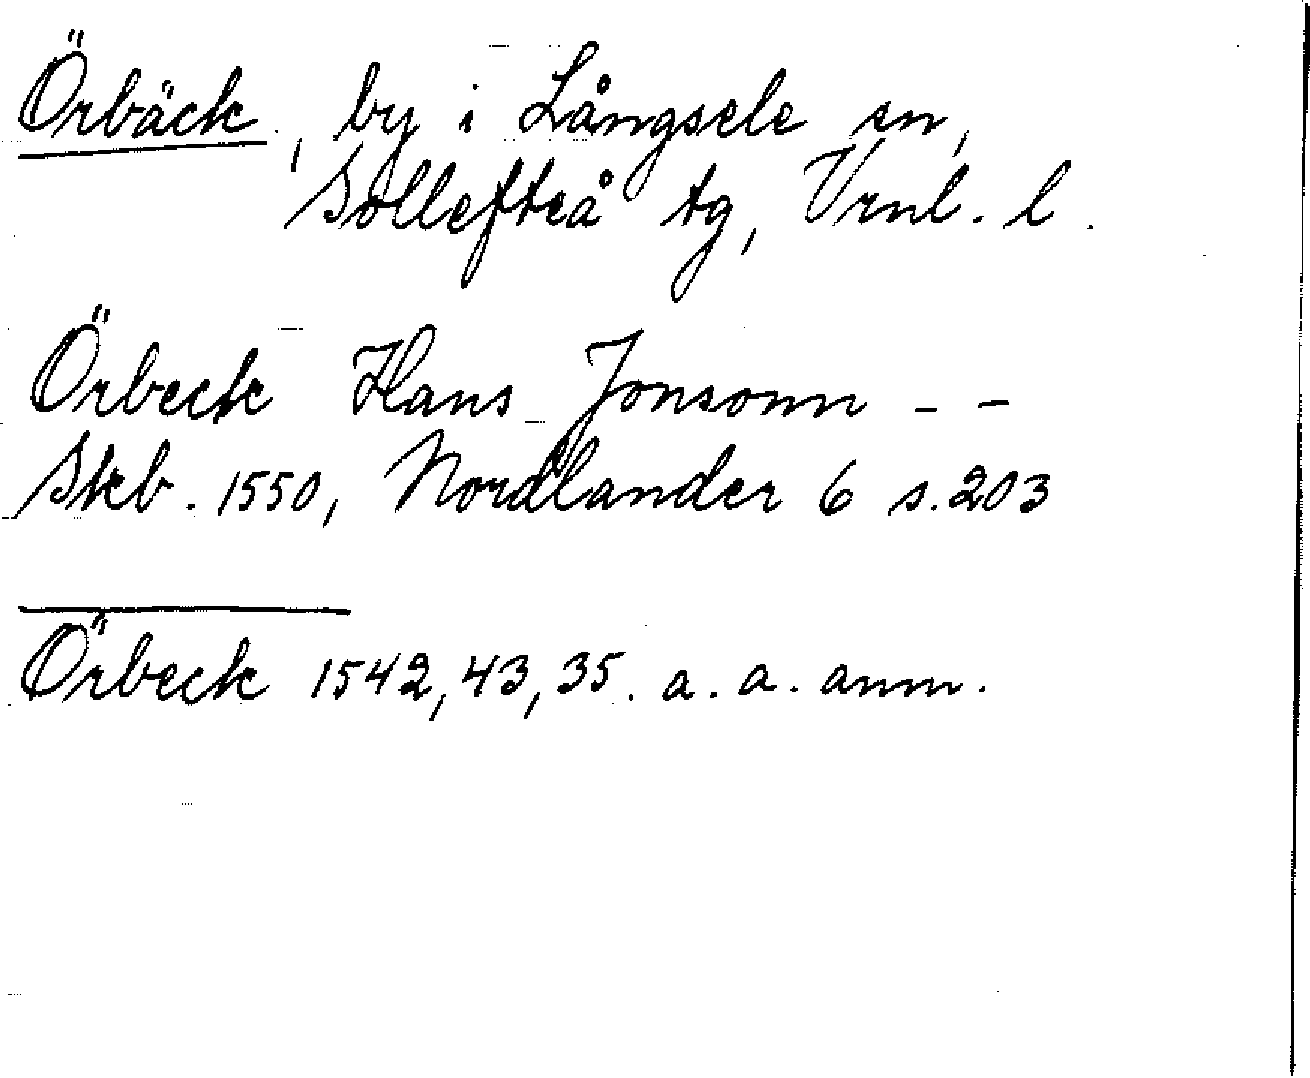 Örbäck, by i Långsele sn,
Sollefteå tg, Vrnl. l.
Örbeck Hans Jonsonn - -
Skb. 1550, Nordlander 6 s. 203
Örbeck 1542, 43, 35. a. a. anm.